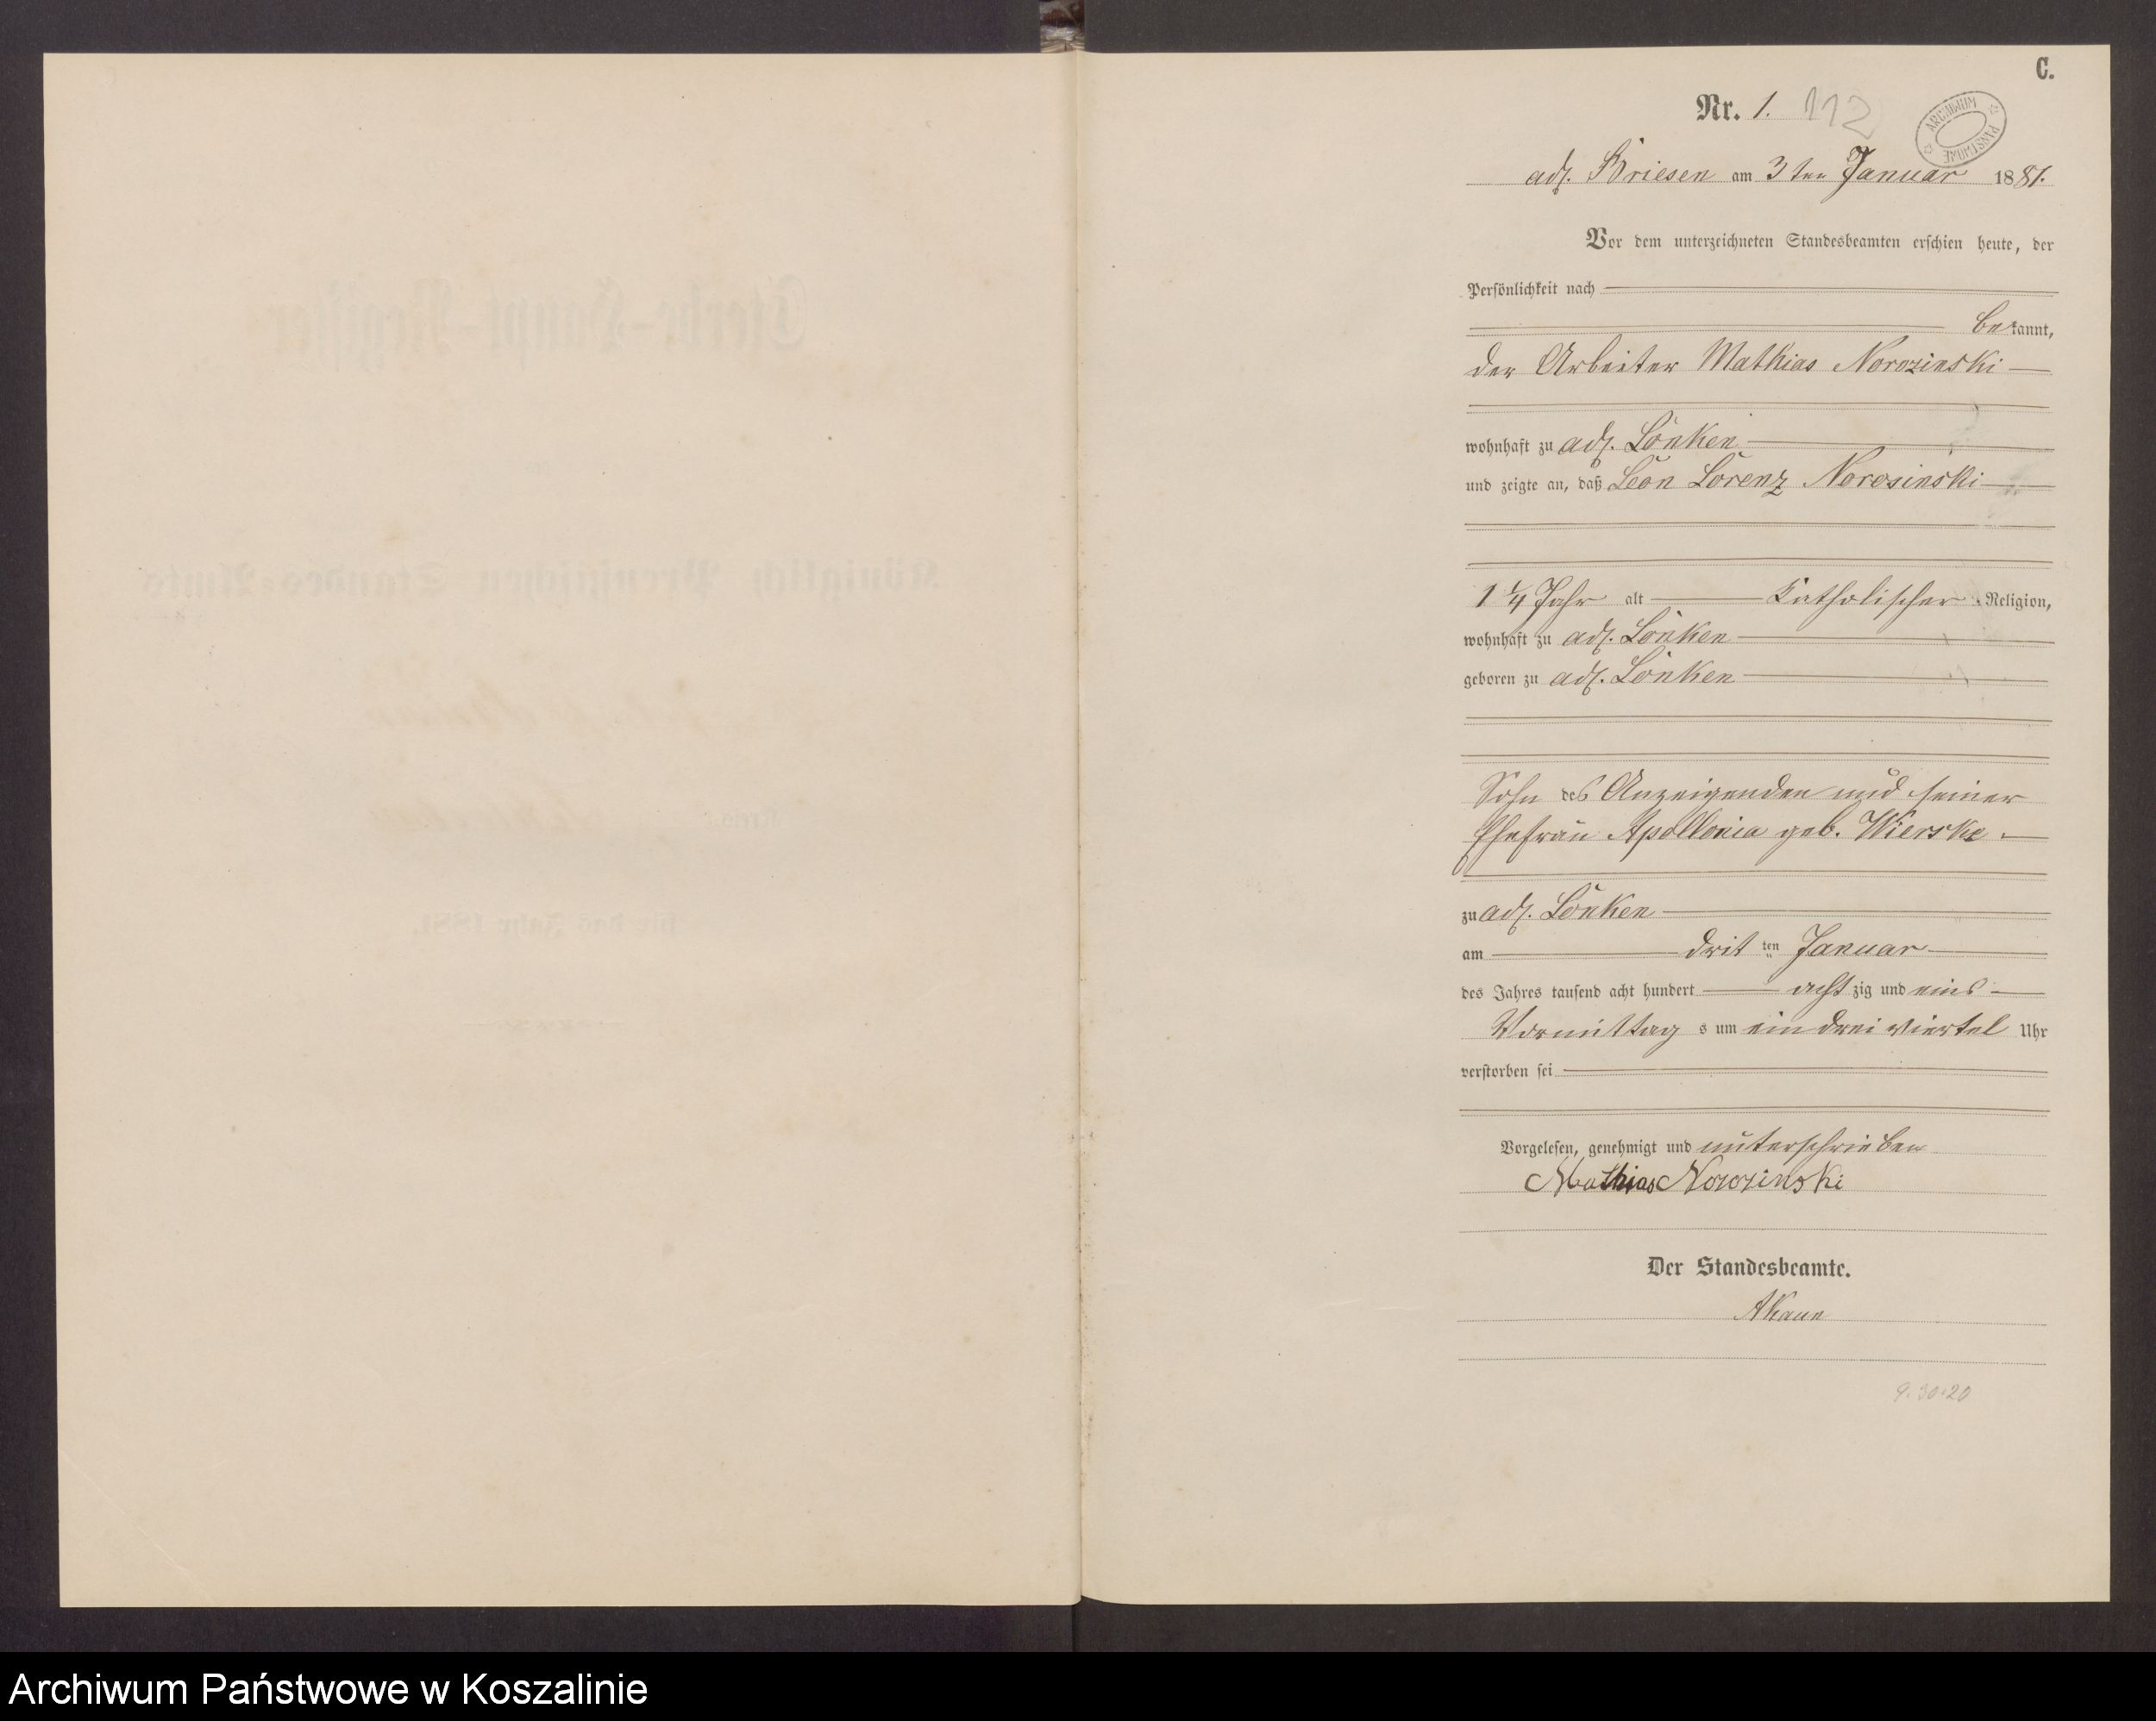 C.
Nr. 1. 112
ARCHIWUM PAŃSTWOWE
adl. Briesen am 3ten Januar 1881.
Vor dem unterzeichneten Standesbeamten erschien heute, der
Persönlichkeit nach
bekannt,
der Arbeiter Mathias Norozinski
wohnhaft zu adl. Lonken
und zeigte an, daß Leon Lorenz Norosinski
1 1/4 Jahr alt katholischer Religion,
wohnhaft zu adl. Lonken
geboren zu adl. Lonken
Sohn des Anzeigenden und seiner
Ehefrau Apollonia geb. Wierske
zu adl. Lonken
am drit ten Januar
des Jahres tausend acht hundert acht zig und eins
Vormittag s um ein drei viertel Uhr
verstorben sei
Vorgelesen, genehmigt und unterschrieben
Mathias Norozinski
Der Standesbeamte.
9.30.20
Sterbe-Haupt-Register
des
Königlich Preußischen Standes-Amts
Kreis
für das Jahr 1881.
Archiwum Państwowe w Koszalinie